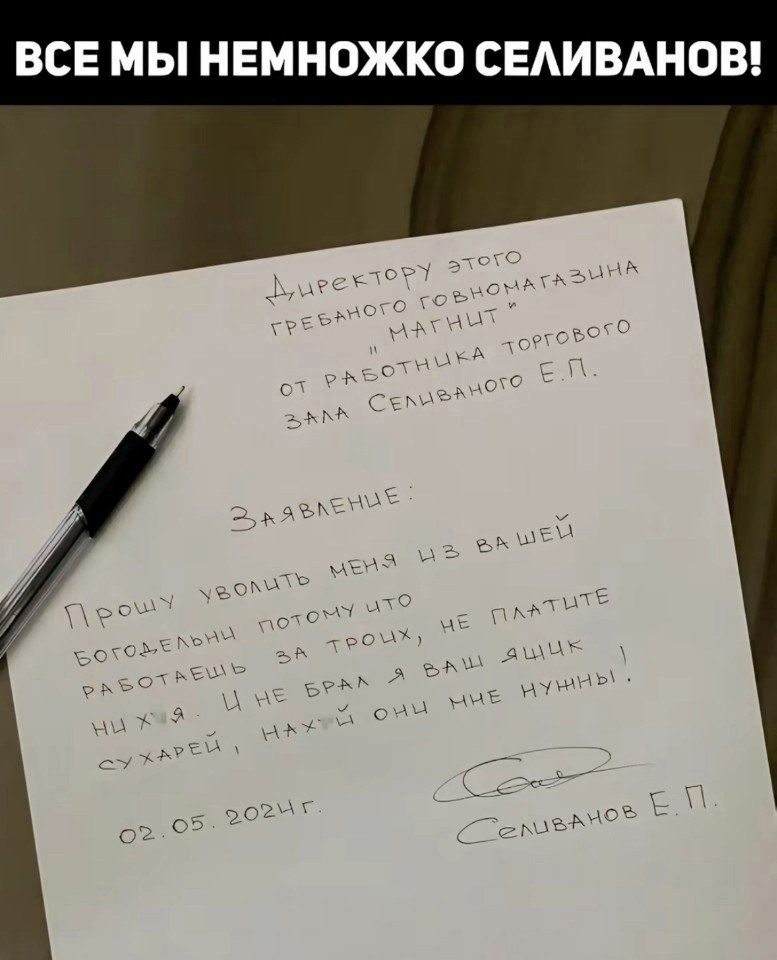 ВСЕ МЫ НЕМНОЖКО СЕЛИВАНОВ!
Директору этого
гребаного говномагазина
"Магнит"
от работника торгового
зала Селиваного Е.П.
Заявление:
Прошу уволить меня из вашей
богодельни потому что
работаешь за троих, не платите
ни х я. И не брал я ваш ящик
сухарей, нах й они мне нужны!
02.05.2024г.
Селиванов Е.П.